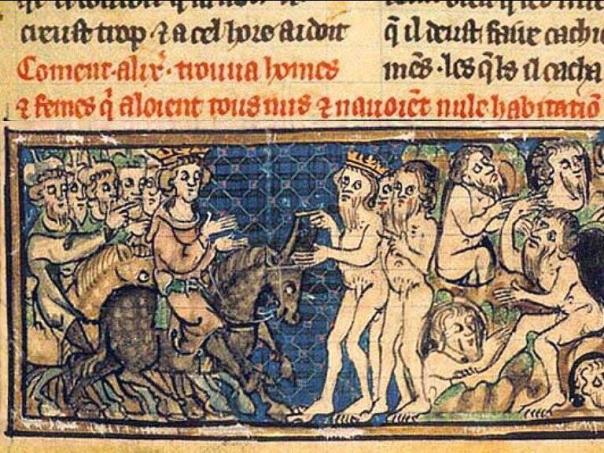 trop · ⁊ a cel hore ardoit
Coment · alix̄ · trouua homes
⁊ femes q̄ aloient tous nus ⁊ nauoiēt nule habitatiō
q̄ il deust faire
mēs · les q̄ls il cacha